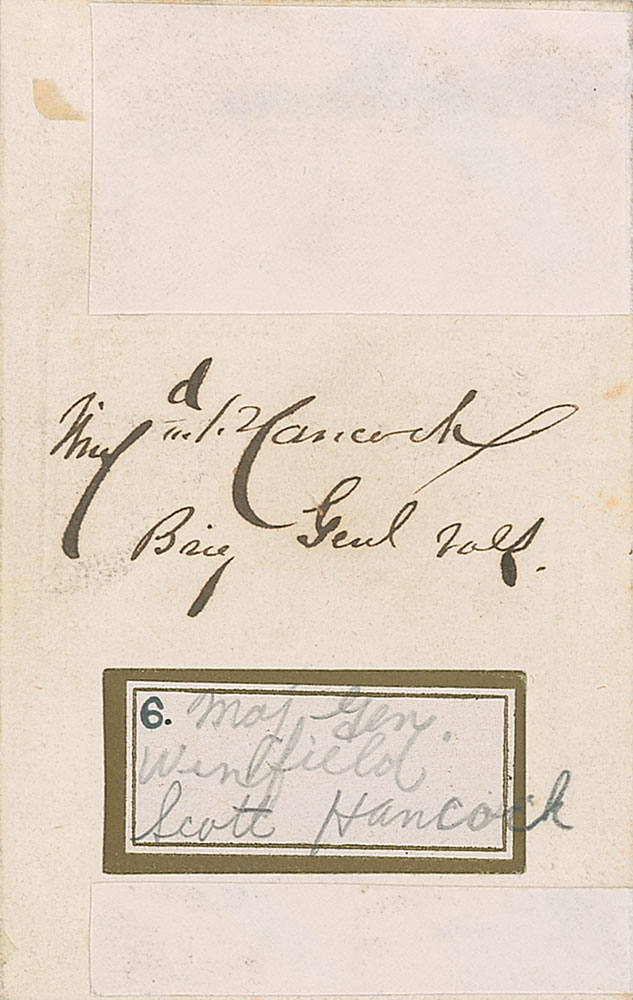 Winfd S. Hancock
Brig Genl Vols.
6. Maj. Gen.
Winfield
Scott Hancock